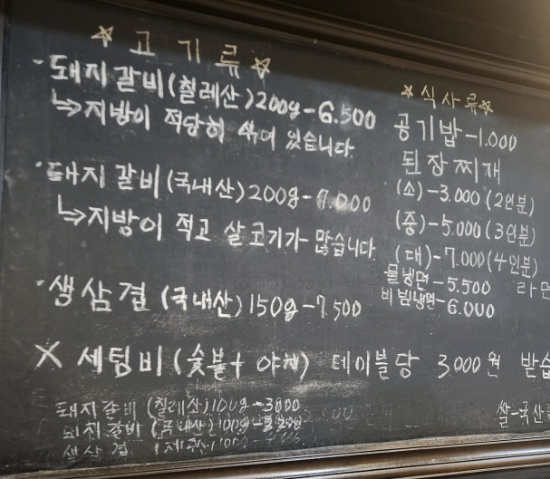 ☆고기류☆
·돼지갈비(칠레산)200g-6.500
↳지방이 적당히 섞여 있습니다.
·돼지갈비(국내산)200g-7.000
↳지방이 적고 살코기가 많습니다.
·생삼겹(국내산)150g-7.500
☆식사류☆
공기밥-1.000
된장찌개
(소)-3.000(2인분)
(중)-5.000(3인분)
(대)-7.000(4인분)
물냉면-5.500
라면
비빔냉면-6.000
X 세팅비(숯불+야채) 테이블당 3000원 받습
돼지갈비(칠레산)100g-3000
돼지갈비(국내산)100g-
생삼겹
쌀-국산